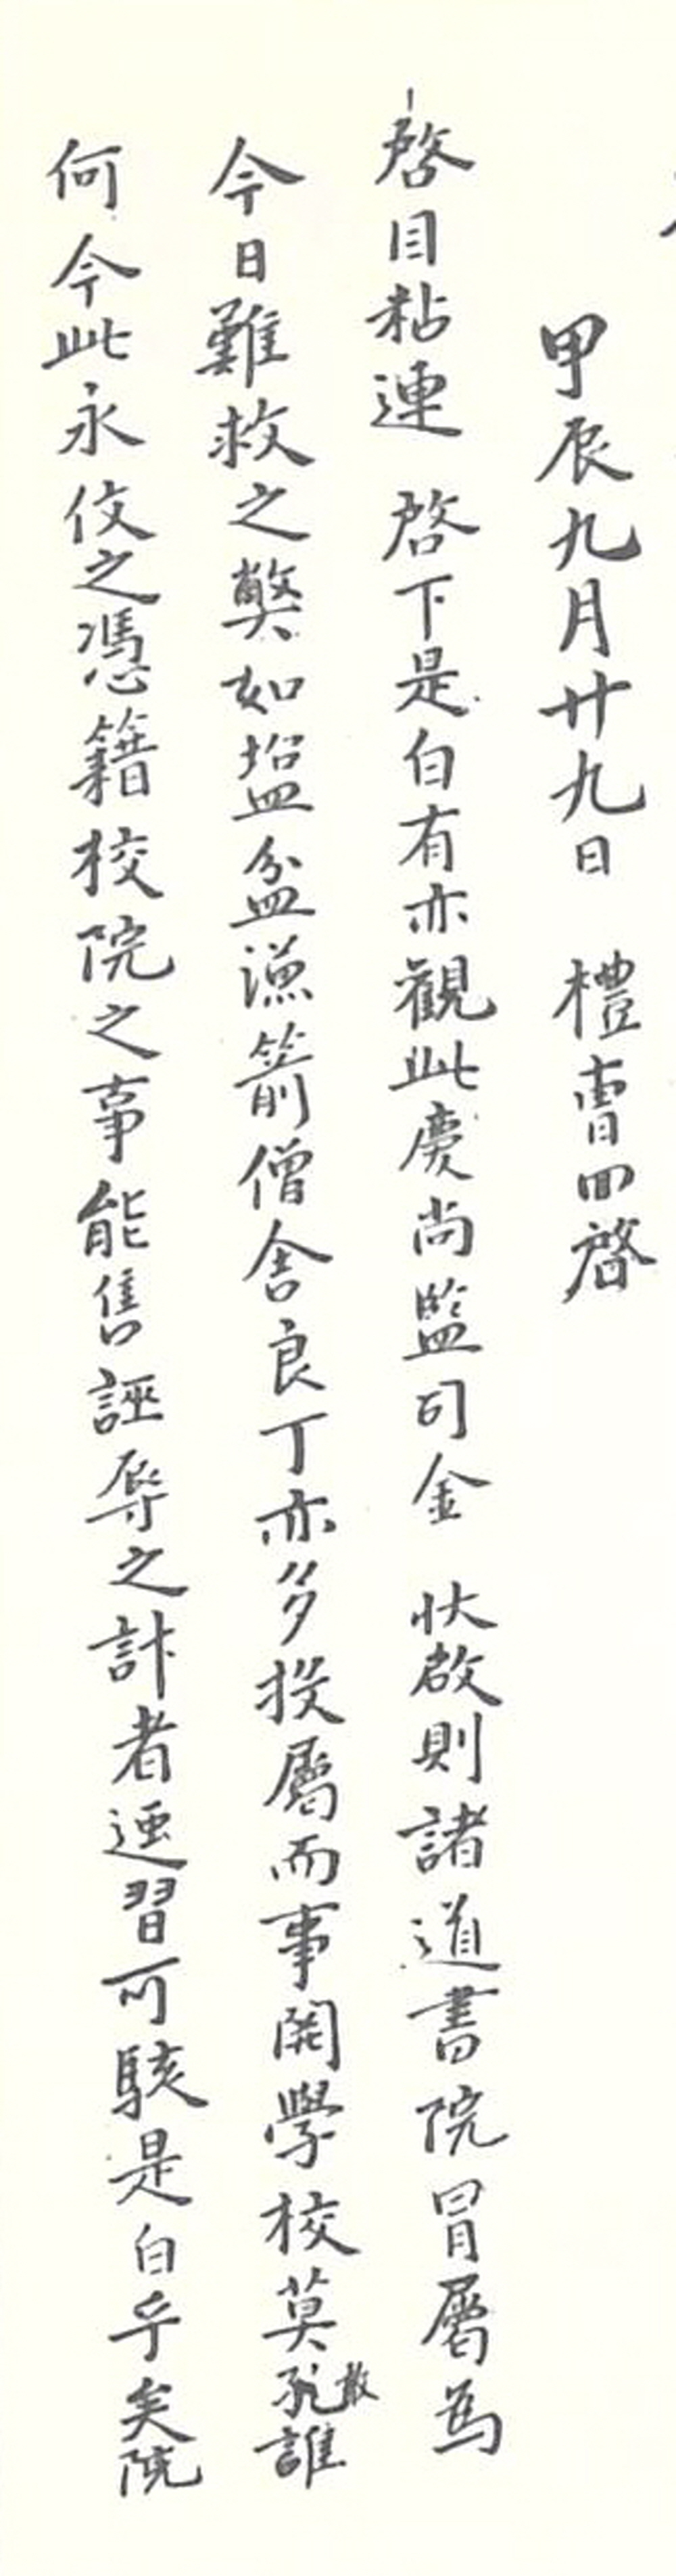 甲辰九月廿九日 禮曹回啓
啓目粘連 啓下是白有亦觀此慶尚監司金 狀啟則諸道書院冒屬為
今日難救之獘如塩盆漁箭僧舍良丁亦多投屬而事関學校莫敢誰
何今此永伎之憑籍校院之事能售誣辱之計者逕習可駭是白乎矣院